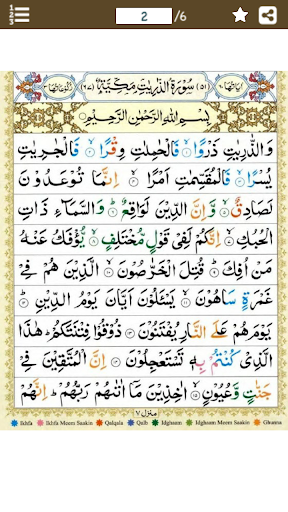 2 /6
اٰیَاتُهَا ۶۰ (۵۱) سُوْرَةُ الذّٰرِیٰتِ مَكِّیَّةٌ (۶۷) رُكُوْعَاتُهَا ۳
بِسْمِ اللّٰهِ الرَّحْمٰنِ الرَّحِیْمِ
وَالذّٰرِیٰتِ ذَرْوًا ۙ۱ فَالْحٰمِلٰتِ وِقْرًا ۙ۲ فَالْجٰرِیٰتِ
یُسْرًا ۙ۳ فَالْمُقَسِّمٰتِ اَمْرًا ۙ۴ اِنَّمَا تُوْعَدُوْنَ
لَصَادِقٌ ۙ۵ وَّاِنَّ الدِّیْنَ لَوَاقِعٌ ؕ۶ وَالسَّمَآءِ ذَاتِ
الْحُبُكِ ۙ۷ اِنَّكُمْ لَفِیْ قَوْلٍ مُّخْتَلِفٍ ۙ۸ یُّؤْفَكُ عَنْهُ
مَنْ اُفِكَ ؕ۹ قُتِلَ الْخَرّٰصُوْنَ ۙ۱۰ الَّذِیْنَ هُمْ فِیْ
غَمْرَةٍ سَاهُوْنَ ۙ۱۱ یَسْـَٔلُوْنَ اَیَّانَ یَوْمُ الدِّیْنِ ؕ۱۲
یَوْمَ هُمْ عَلَی النَّارِ یُفْتَنُوْنَ ۱۳ ذُوْقُوْا فِتْنَتَكُمْ ؕ هٰذَا
الَّذِیْ كُنْتُمْ بِهٖ تَسْتَعْجِلُوْنَ ۱۴ اِنَّ الْمُتَّقِیْنَ فِیْ
جَنّٰتٍ وَّعُیُوْنٍ ۙ۱۵ اٰخِذِیْنَ مَاۤ اٰتٰىهُمْ رَبُّهُمْ ؕ اِنَّهُمْ
منزل ۷
Ikhfa Ikhfa Meem Saakin Qalqala Qalb Idghaam Idghaam Meem Saakin Ghunna